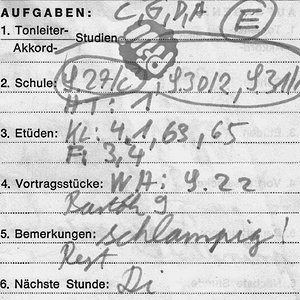 AUFGABEN: C, G, D, A (E)
1. Tonleiter-
Akkord- Studien
2. Schule: S 27/2, S 30/2, S 31/1
HT: 1
3. Etüden: KL: 4, 1, 63, 65
F: 3, 4
4. Vortragsstücke: WH: S. 22
Barth 9
5. Bemerkungen: schlampig!
Rest
6. Nächste Stunde: Di